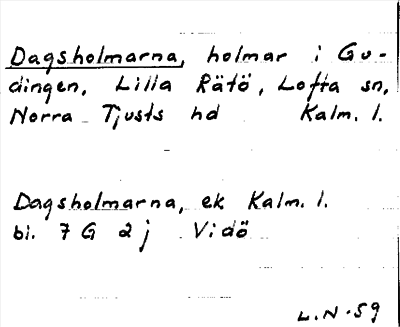 Dagsholmarna, holmar i Gu-
dingen, Lilla Rätö, Lofta sn,
Norra Tjusts hd Kalm. l.
Dagsholmarna, ek Kalm. l.
bl. 7 G 2 j Vidö
L.N.-59